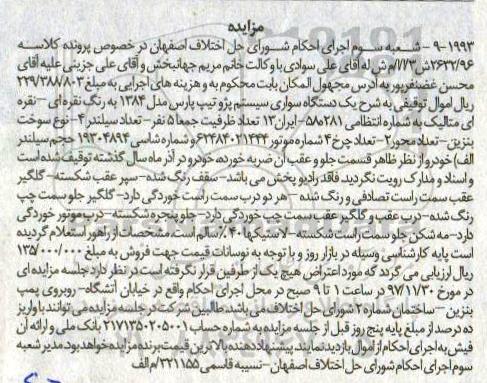 مزایده
۹-۱۹۹۳ - شعبه سوم اجرای احکام شورای حل اختلاف اصفهان در خصوص پرونده کلاسه
۲۶۳۳/۹۶ش ا/۳/ح/م ش له آقای علی سوادی با وکالت خانم مریم جهانبخش و آقای علی جزینی علیه آقای
محسن غضنفرپور به آدرس مجهول المکان بابت محکوم به و هزینه های اجرایی به مبلغ ۲۲۹/۳۸۸/۸۰۳
ریال اموال توقیفی به شرح یک دستگاه سواری سیستم پژو تیپ پارس مدل ۱۳۸۴ به رنگ نقره ای - نقره
ای متالیک به شماره انتظامی ۲۸۱ه۵۸-ایران۱۳ تعداد ظرفیت جمعا ۵ نفر- تعداد سیلندر ۴- نوع سوخت
بنزین - تعداد محور ۲- تعداد چرخ ۴ شماره موتور ۱۲۴۸۴۰۲۱۴۴۴ و شماره شاسی ۱۹۳۰۴۸۹۴ حجم سیلندر
الف) خودرو از نظر ظاهر قسمت جلو و عقب آن ضربه خورده، خودرو در آذر ماه سال گذشته توقیف شده است
و اسناد و مدارک رویت نگردید فاقد رادیو پخش می باشد- سقف رنگ شده- سپر عقب شکسته- گلگیر
عقب سمت راست تصادفی و رنگ شده - هر دو درب سمت راست خوردگی دارد- گلگیر جلو سمت چپ
رنگ شده - درب عقب و گلگیر عقب سمت چپ خوردگی دارد- جلو پنجره شکسته- درب موتور خوردگی
دارد- مه شکن جلو سمت راست شکسته - لاستیکها ۴۰٪ سالم است. مشخصات از راهور استعلام گردیده
است پایه کارشناسی وسیله در بازار روز و با توجه به نوسانات قیمت جهت فروش به مبلغ ۱۳۵/۰۰۰/۰۰۰
ریال ارزیابی می گردد که مورد اعتراض هیچ یک از طرفین قرار نگرفته است در نظر دارد جلسه مزایده ای
در مورخ ۹۷/۱۱/۳۰ در ساعت ۱ تا ۹ صبح در محل اجرای احکام واقع در خیابان آتشگاه- روبروی پمپ
بنزین - ساختمان شماره ۲ شورای حل اختلاف می باشد، طالبین شرکت در جلسه مزایده می توانند با واریز
ده درصد از مبلغ پایه پنج روز قبل از جلسه مزایده به شماره حساب ۲۱۷۱۳۵۰۲۰۵۰۰۱ بانک ملی و ارائه آن
فیش به اجرای احکام از اموال بازدید نمایند. پیشنهاد دهنده بالاترین قیمت برنده مزایده خواهد بود. مدیر شعبه
سوم اجرای احکام شورای حل اختلاف اصفهان - نسیبه قاسمی ۳۲۱۱۵۵/م الف